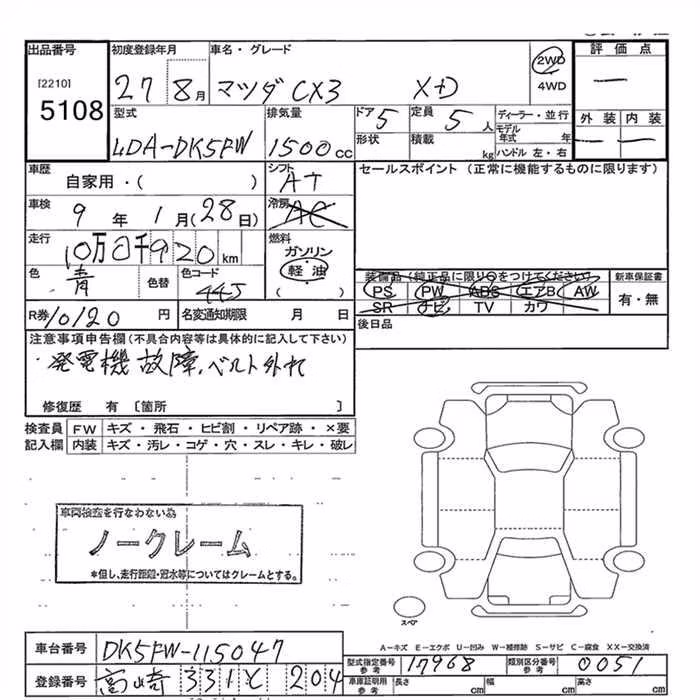 出品番号
[2210]
5108
初度登録年月
27 8月
車名・グレード
マツダ CX3 XD
2WD
4WD
評価点
—
外装 内装
— —
型式
LDA-DK5FW
排気量
1500cc
ドア
5
定員
5人
形状
積載
kg
ディーラー・並行
モデル年式 年
ハンドル 左・右
車歴
自家用・( )
シフト
AT
セールスポイント (正常に機能するものに限ります)
車検
9年 1月(28日)
冷房
AC
走行
10万0千920km
燃料
ガソリン
軽油
( )
色
青
色替
色コード
44J
装備品(純正品に限り○をつけてください)
PS PW ABS エアB AW
SR ナビ TV カワ
新車保証書
有・無
R券 10120円
名変通知期限 月 日
後日品
注意事項申告欄(不具合内容等は具体的に記入して下さい)
・発電機故障、ベルト外れ
修復歴 有 〔箇所 〕
検査員記入欄
FW キズ・飛石・ヒビ割・リペア跡・×要
内装 キズ・汚レ・コゲ・穴・スレ・キレ・破レ
車両検査を行なわない為
ノークレーム
*但し、走行距離・冠水等についてはクレームとする。
スペア
A-キズ E-エクボ U-凹み W-補修跡 S-サビ C-腐食 XX-交換済
車台番号
DK5FW-115047
型式指定番号 参考
17968
類別区分番号 参考
0051
登録番号
高崎 331 と 204
車庫証明用 参考
長さ cm 幅 cm 高さ cm